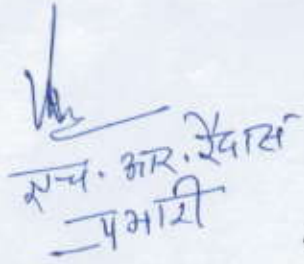 एच. आर. रैदास
प्रभारी